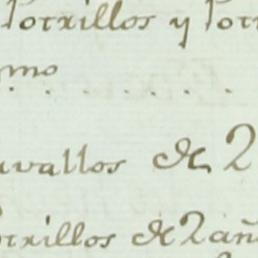 Potrillos y Potr
mo
avallos de 2
otrillos de 2 añ